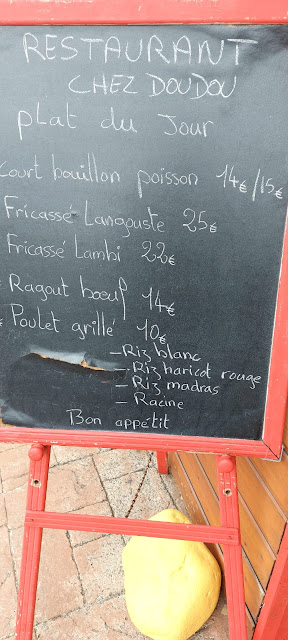 RESTAURANT
CHEZ DOUDOU
plat du Jour
Court bouillon poisson 14€/15€
Fricassé Langouste 25€
Fricassé Lambi 22€
Ragout bœuf 14€
Poulet grillé 10€
- Riz blanc
- Riz haricot rouge
- Riz madras
- Racine
Bon appétit